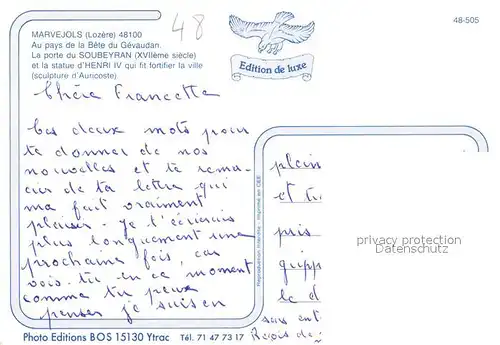 MARVEJOLS (Lozère) 48100
48
48-505
Au pays de la Bête du Gévaudan.
La porte du SOUBEYRAN (XVIIème siècle)
et la statue d'HENRI IV qui fit fortifier la ville
(sculpture d'Auricoste)
Edition de luxe
Chère Francette
Ces deux mots pour
te donner de nos
nouvelles et te remer-
cier de ta lettre qui
ma fait vraiment
plaisir. je t'écrirais
plus longuement une
prochaine fois, car
vois-tu en ce moment
comme tu peux
penser je suis en
plein
et tr
pris
gripp
la d
sus ent
Reproduction interdite - Imprimé en CEE
privacy protection
Datenschutz
Photo Editions BOS 15130 Ytrac Tél. 71 47 73 17